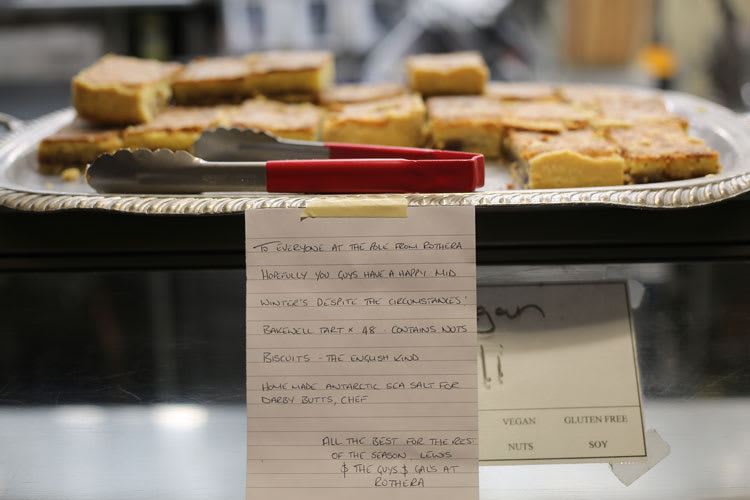 TO EVERYONE AT THE POLE FROM ROTHERA
HOPEFULLY YOU GUYS HAVE A HAPPY MID
WINTER'S DESPITE THE CIRCUMSTANCES!
BAKEWELL TART x 48 - CONTAINS NUTS
BISCUITS - THE ENGLISH KIND
HOME MADE ANTARCTIC SEA SALT FOR
DARBY BUTTS, CHEF
ALL THE BEST FOR THE REST
OF THE SEASON, LEWIS
& THE GUYS & GALS AT
ROTHERA
VEGAN GLUTEN FREE
NUTS SOY